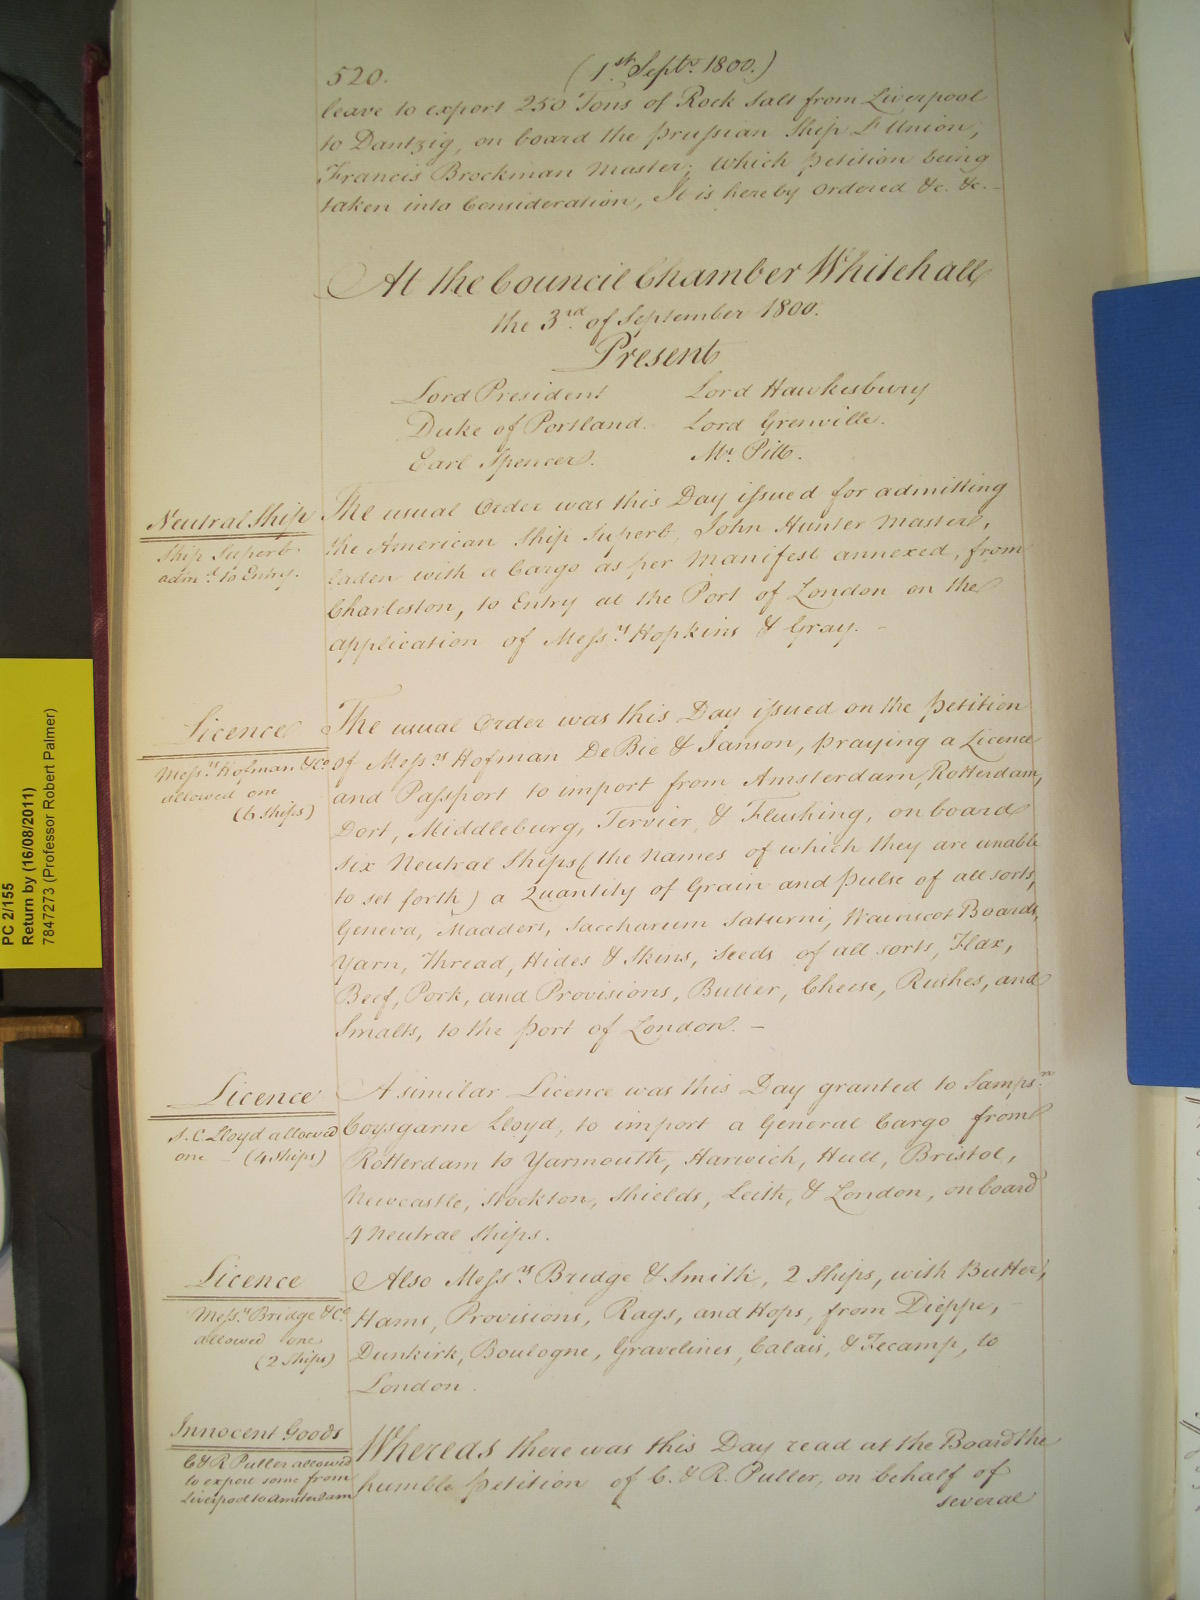 520. (1st Septr 1800.)
leave to export 250 Tons of Rock Salt from Liverpool
to Dantzig, on board the Prussian Ship L'Union,
Francis Brockman Master; Which Petition being
taken into Consideration, It is hereby Ordered &c. &c. -
At the Council Chamber Whitehall
the 3rd of September 1800.
Present
Lord President Lord Hawkesbury
Duke of Portland. Lord Grenville.
Earl Spencer. Mr. Pitt.
Neutral Ship
Ship Superb
adm.d to Entry.
The usual Order was this Day issued for admitting
the American Ship Superb, John Hunter Master,
laden with a Cargo as per Manifest annexed, from
Charleston, to Entry at the Port of London on the
application of Messrs Hopkins & Gray. -
Licence
Messrs Hofman & Co
allowed one
(6 Ships)
The usual Order was this Day issued on the Petition
of Messrs Hofman De Bie & Janson, praying a Licence
and Passport to import from Amsterdam, Rotterdam,
Dort, Middleburg, Tervier, & Flushing, on board
six Neutral Ships (the Names of which they are unable
to set forth) a Quantity of Grain and Pulse of all sorts,
Geneva, Madders, Saccharum Saturni, Wainscot Boards,
Yarn, Thread, Hides & Skins, Seeds of all sorts, Flax,
Beef, Pork, and Provisions, Butter, Cheese, Rushes, and
Smalts, to the Port of London. -
Licence
S. C. Lloyd allowed
one - (4 Ships)
A similar Licence was this Day granted to Sampsn
Coysgarne Lloyd, to import a General Cargo from
Rotterdam to Yarmouth, Harwich, Hull, Bristol,
Newcastle, Stockton, Shields, Leith, & London, on board
4 Neutral Ships.
Licence
Messrs Bridge & Co
allowed one
(2 Ships)
Also Messrs Bridge & Smith, 2 Ships, with Butter,
Hams, Provisions, Rags, and Hops, from Dieppe, -
Dunkirk, Boulogne, Gravelines, Calais, & Fecamp, to
London.
Innocent Goods
C & R Puller allowed
to export some from
Liverpool to Amsterdam
Whereas there was this Day read at the Board the
humble Petition of C. & R. Puller, on behalf of
several
PC 2/155
Return by (16/08/2011)
7847273 (Professor Robert Palmer)